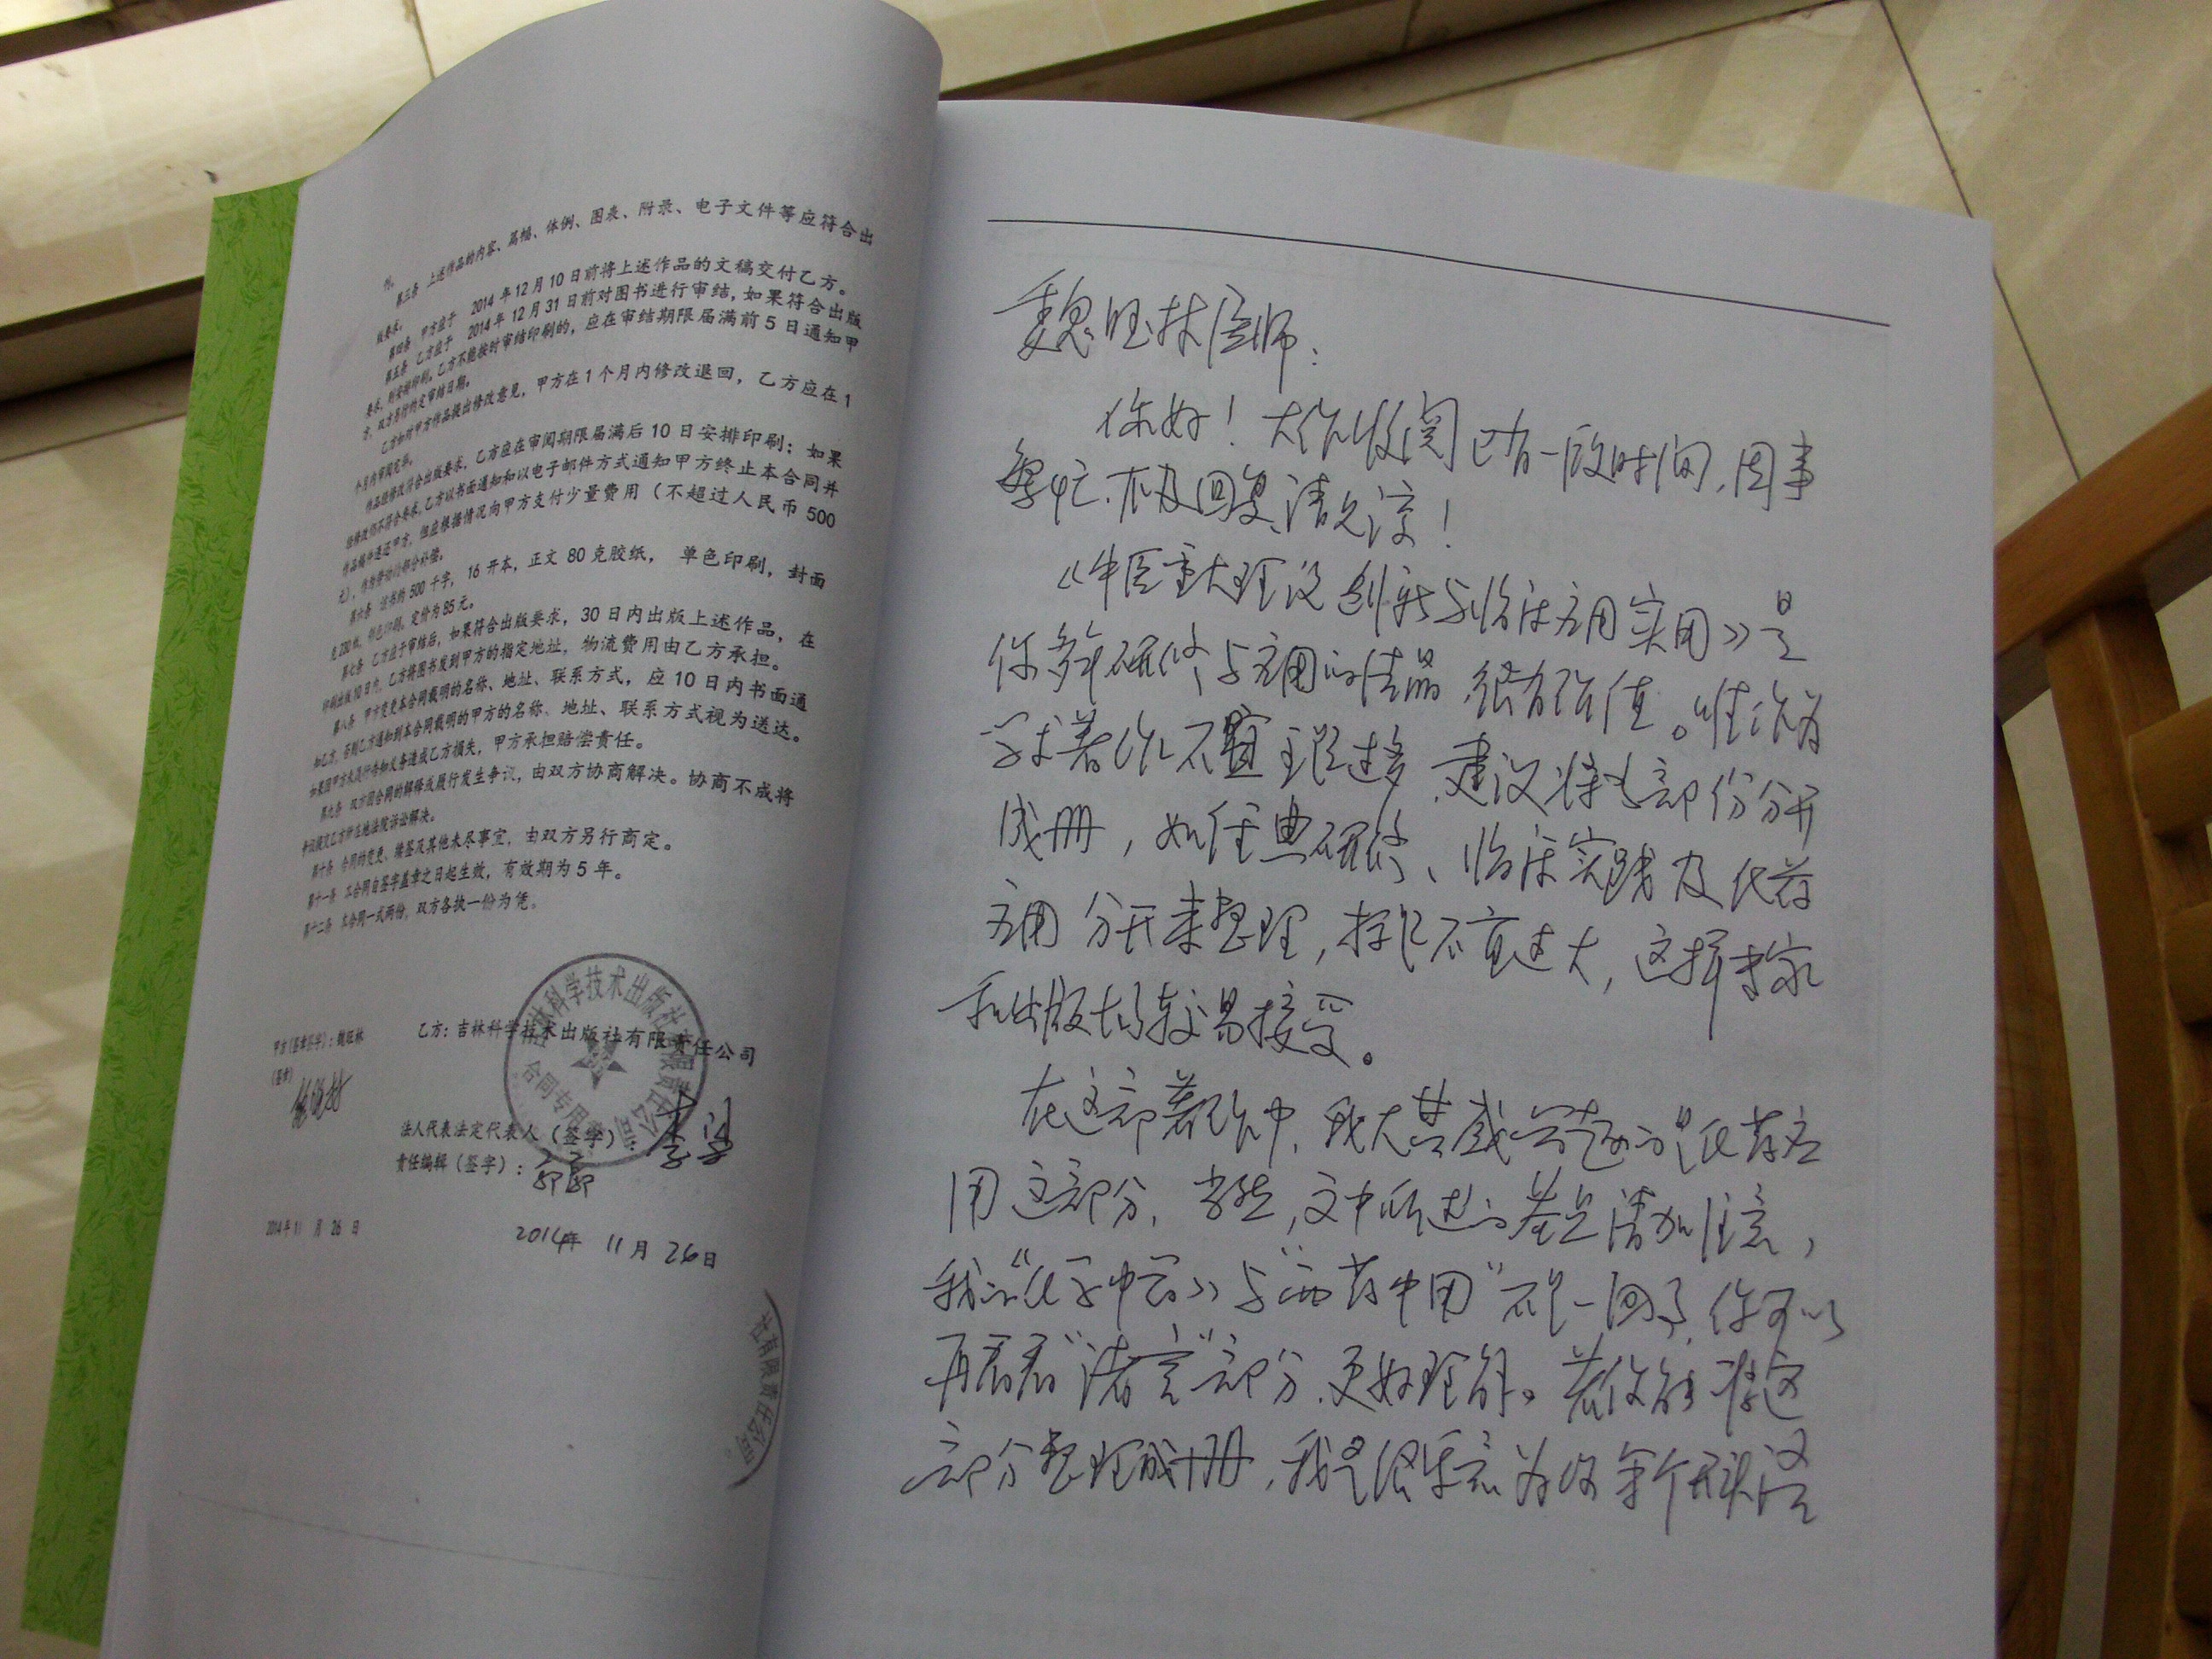 作。
第三条 上述作品的内容、篇幅、体例、图表、附录、电子文件等应符合出
版要求。
第四条 甲方应于 2014年12月10日前将上述作品的文稿交付乙方。
第五条 乙方应于 2014年12月31日前对图书进行审结，如果符合出版
要求，则安排印刷。乙方不能按时审结印刷的，应在审结期限届满前5日通知甲
方，双方另行约定审结日期。
乙方如对甲方作品提出修改意见，甲方在1个月内修改退回，乙方应在1
个月内审阅完毕。
作品经修改符合出版要求，乙方应在审阅期限届满后10日安排印刷；如果
经修改仍不符合要求，乙方以书面通知和以电子邮件方式通知甲方终止本合同并
作品稿件退还甲方，但应根据情况向甲方支付少量费用（不超过人民币500
元），作为劳动的部分补偿。
第六条 该书约500千字，16开本，正文80克胶纸， 单色印刷，封面
定价为85元。
第七条 乙方应于审结后，如果符合出版要求，30日内出版上述作品，在
印刷出版10日内，乙方将图书发到甲方的指定地址，物流费用由乙方承担。
第八条 甲方变更本合同载明的名称、地址、联系方式，应10日内书面通
知乙方，否则乙方通知到本合同载明的甲方的名称、地址、联系方式视为送达。
如果因甲方未履行告知义务造成乙方损失，甲方承担赔偿责任。
第九条 双方因合同的解释或履行发生争议，由双方协商解决。协商不成将
争议提交乙方所在地法院诉讼解决。
第十条 合同的变更、续签及其他未尽事宜，由双方另行商定。
第十一条 本合同自签字盖章之日起生效，有效期为5年。
第十二条 本合同一式两份，双方各执一份为凭。
甲方（签章签字）：魏旺林
（签章）
乙方：吉林科学技术出版社有限责任公司
法人代表法定代表人（签字）：
责任编辑（签字）：
2014年11月26日
2014年 11月 26日
吉林科学技术出版社有限责任公司
合同专用章
社有限责任公司
魏旺林医师：
你好！大作收阅已有一段时间，因事
繁忙，未及回复，请见谅！
《中医重大理论创新与临床应用实用》是
你多年研修与应用的结晶，很有价值。唯作为
学术著作不宜主张过多，建议将各部份分开
成册，如经典研修、临床实践及化药
应用分开来整理，摊子不宜过大，这样专家
和出版、市场较易接受。
在这部著作中，我尤其感兴趣的是化药应
用这部分，当然，文中所述的差异请加注意，
我的“化学中药”与“西药中用”不是一回事，你可以
再看看“绪言”部分，更好理解。若你能将这
部分整理成册，我是很乐意为你写个开头语